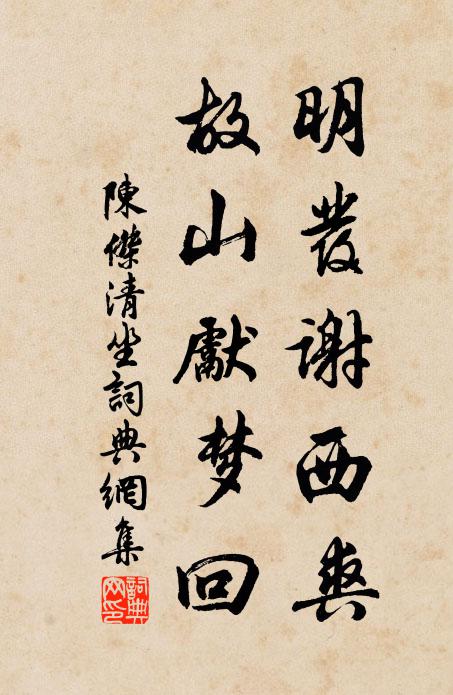 明發謝西爽
故山獻梦回
陳傑清坐詞典網集
詞典网印